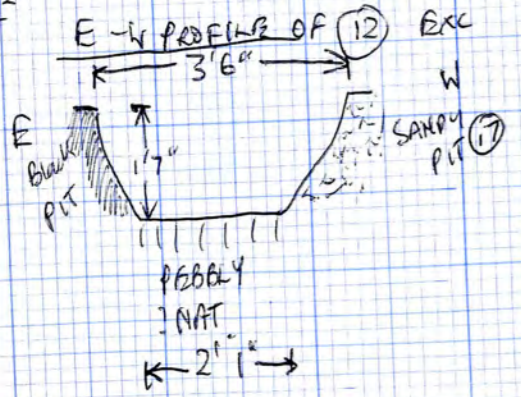 E-W PROFILE OF 12 EXC
3'6"
W
E
SANDY
PIT 17
Black
PIT
1'7"
PEBBLY
NAT
2' 1"